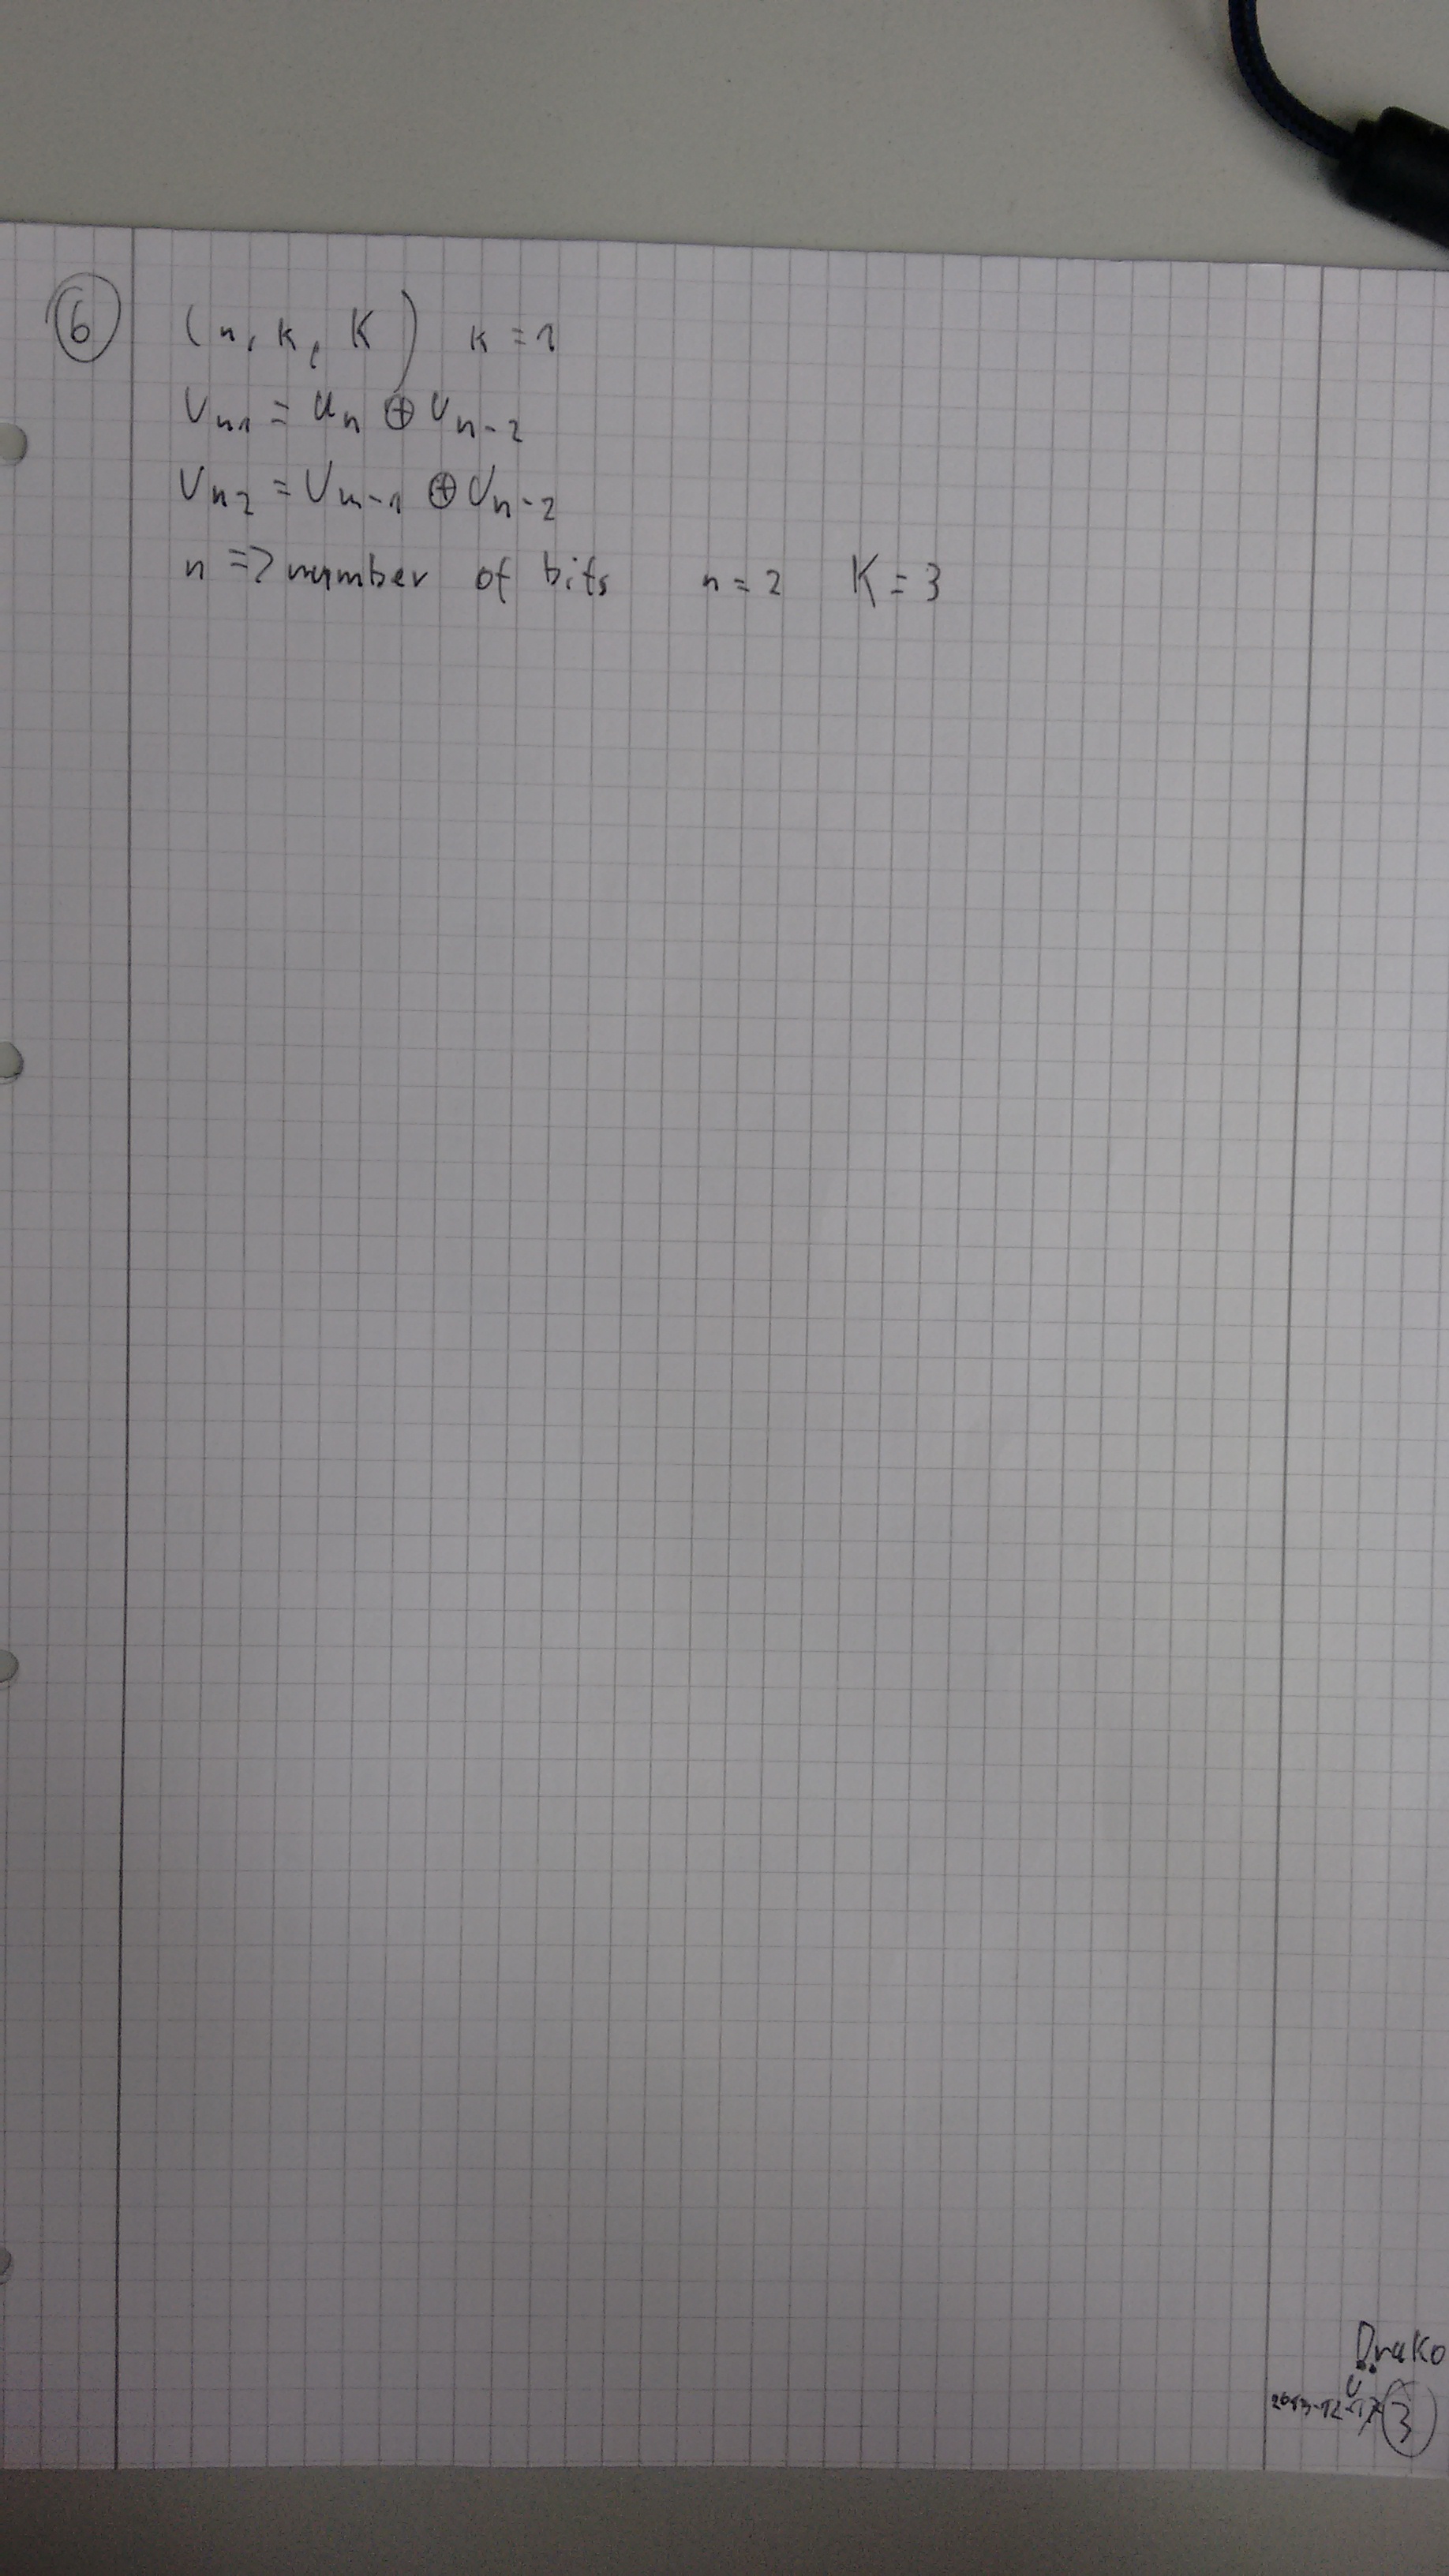 6 (n, k, K) k = 1
Vn1 = Un ⊕ Un-2
Vn2 = Un-1 ⊕ Un-2
n => number of bits n = 2 K = 3
Drako
2013-12-17 3